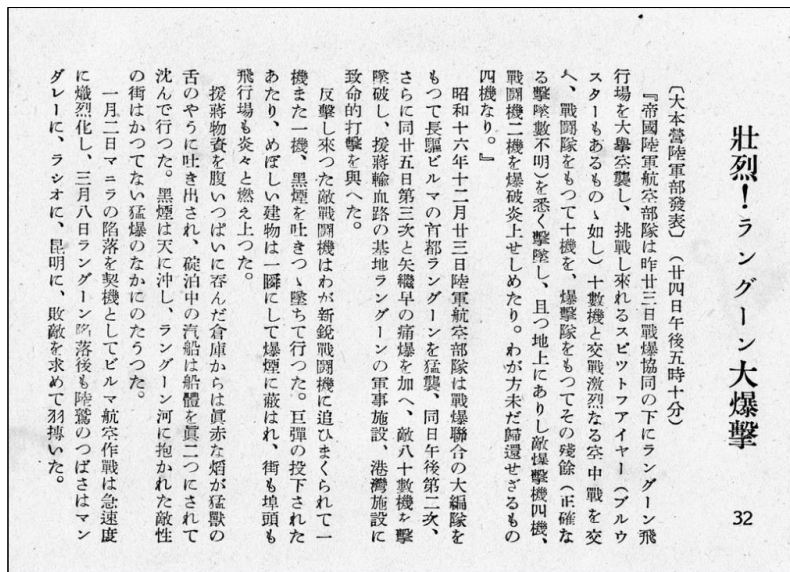 壯烈！ラングーン大爆擊
32
〔大本營陸軍部發表〕（廿四日午後五時十分）
『帝國陸軍航空部隊は昨廿三日戰爆協同の下にラングーン飛
行場を大擧空襲し、挑戰し來れるスピツトフアイヤー（ブルウ
スターもあるものゝ如し）十數機と交戰激烈なる空中戰を交
へ、戰鬪隊をもつて十機を、爆擊隊をもつてその殘餘（正確な
る擊墜數不明）を悉く擊墜し、且つ地上にありし敵爆擊機四機、
戰鬪機二機を爆破炎上せしめたり。わが方未だ歸還せざるもの
四機なり。』
昭和十六年十二月廿三日陸軍航空部隊は戰爆聯合の大編隊を
もつて長驅ビルマの首都ラングーンを猛襲、同日午後第二次、
さらに同廿五日第三次と矢繼早の痛爆を加へ、敵八十數機を擊
墜破し、援蔣輸血路の基地ラングーンの軍事施設、港灣施設に
致命的打擊を與へた。
反擊し來つた敵戰鬪機はわが新銳戰鬪機に追ひまくられて一
機また一機、黑煙を吐きつゝ墜ちて行つた。巨彈の投下された
あたり、めぼしい建物は一瞬にして爆煙に蔽はれ、街も埠頭も
飛行場も炎々と燃え上つた。
援蔣物資を腹いつぱいに吞んだ倉庫からは眞赤な焰が猛獸の
舌のやうに吐き出され、碇泊中の汽船は船體を眞二つにされて
沈んで行つた。黑煙は天に沖し、ラングーン河に抱かれた敵性
の街はかつてない猛爆のなかにのたうつた。
一月二日マニラの陷落を契機としてビルマ航空作戰は急速度
に熾烈化し、三月八日ラングーン陷落後も陸鷲のつばさはマン
ダレーに、ラシオに、昆明に、敗敵を求めて羽搏いた。